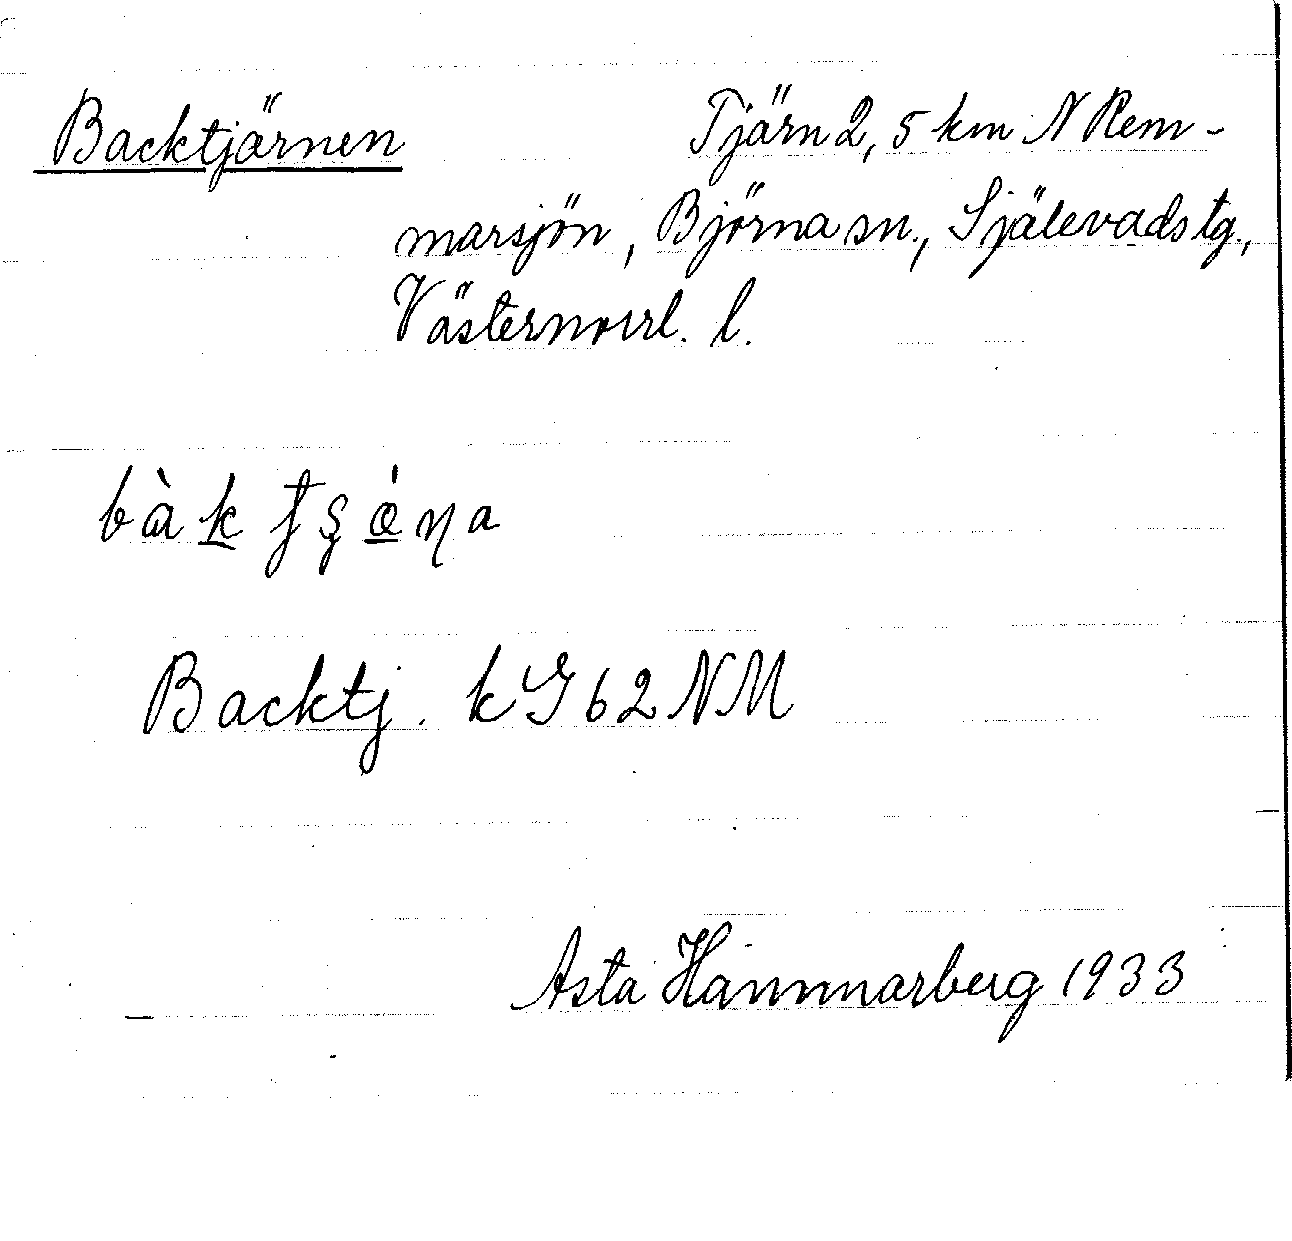 Backtjärnen Tjärn 2,5 km N Rem-
marsjön, Björna sn., Själevads tg.,
Västernorrl. l.
bàk tʂǽɳa
Backtj. kG62NM
Asta Hammarberg 1933